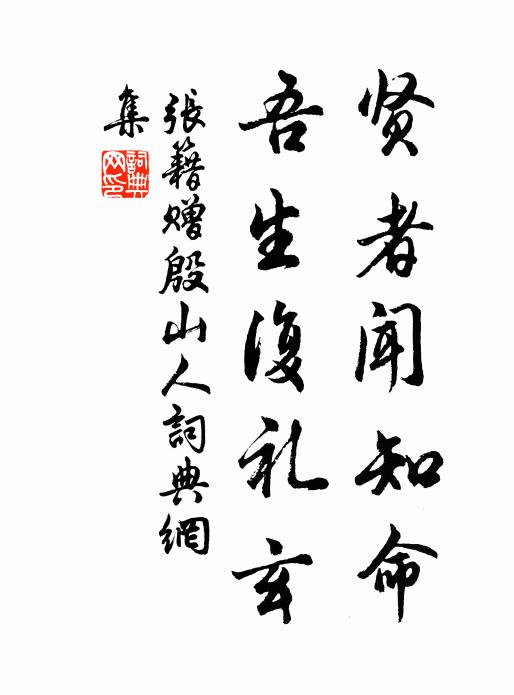 贤者闻知命
吾生復礼玄
張籍赠殷山人詞典網
集
詞典
网印